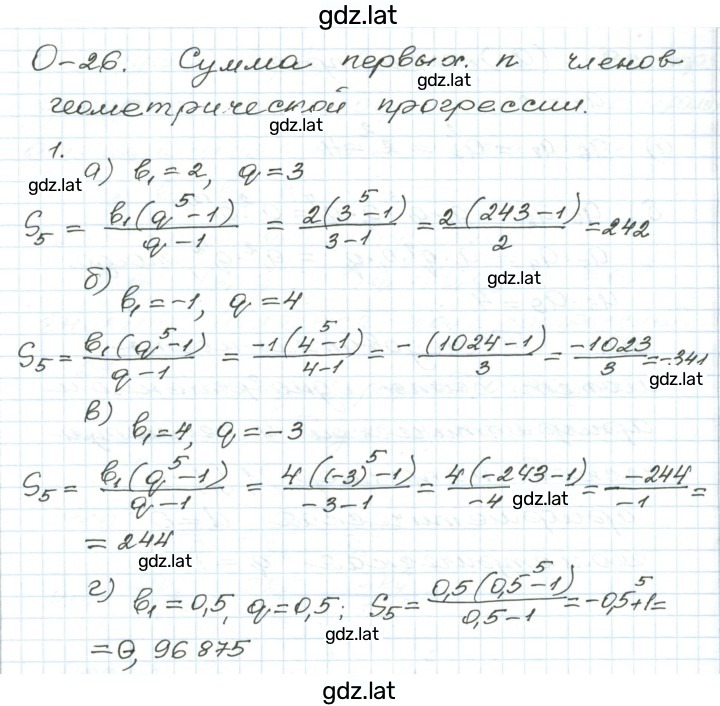 gdz.lat
О-26. Сумма первых n членов
gdz.lat
геометрической прогрессии.
gdz.lat
1.
gdz.lat
а) b₁ = 2, q = 3
S₅ = b₁(q⁵-1)/(q-1) = 2(3⁵-1)/(3-1) = 2(243-1)/2 = 242
б)
gdz.lat
b₁ = -1, q = 4
S₅ = b₁(q⁵-1)/(q-1) = -1(4⁵-1)/(4-1) = -(1024-1)/3 = -1023/3 = -341
gdz.lat
в)
b₁ = 4, q = -3
S₅ = b₁(q⁵-1)/(q-1) = 4((-3)⁵-1)/(-3-1) = 4(-243-1)/-4 = -244/-1 =
gdz.lat
= 244
gdz.lat
г)
b₁ = 0,5, q = 0,5; S₅ = 0,5(0,5⁵-1)/(0,5-1) = -0,5⁵+1 =
gdz.lat
= 0,96875
gdz.lat